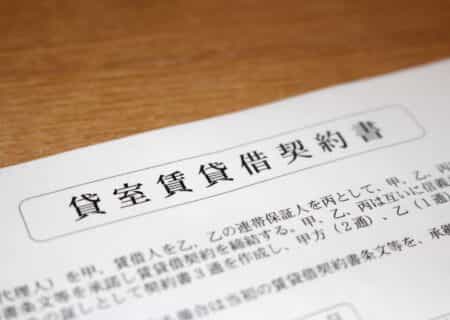 貸室賃貸借契約書
代理人）を甲、賃借人を乙、乙の連帯保証人を丙として、甲、乙、丙
書条文等を承諾し賃貸借契約を締結する。甲、乙、丙は互いに信義
の証しとして契約書3通を作成し、甲方（2通）、乙（1通）
場合は当初の賃貸借契約書条文等を、承